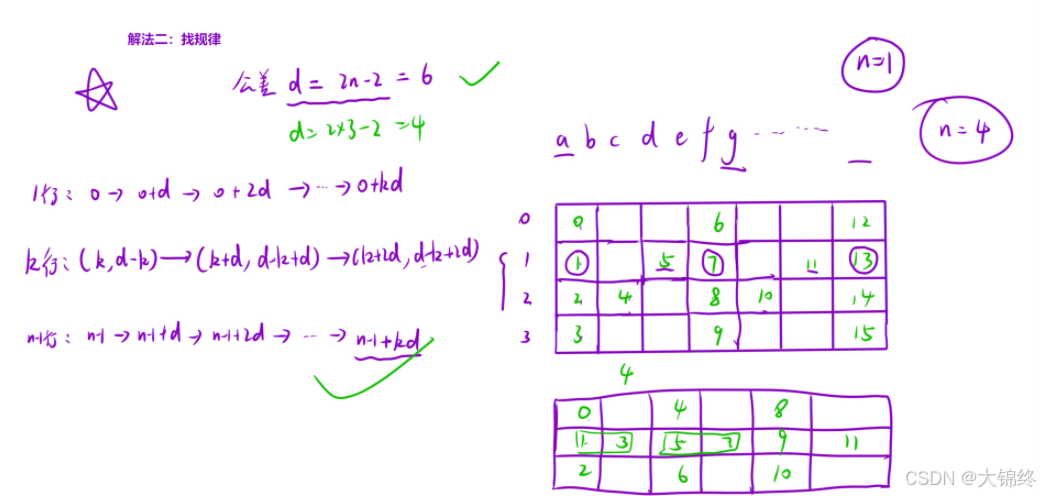 解法二：找规律
公差 d = 2n-2 = 6
d = 2×3-2 = 4
n=1
n=4
a b c d e f g ...... 
1行: 0 → 0+d → 0+2d → ... → 0+kd
k行: (k, d-k) → (k+d, d-k+d) → (k+2d, d-k+2d)
n-1行: n-1 → n-1+d → n-1+2d → ... → n-1+kd
0 0 6 12
1 1 5 7 11 13
2 2 4 8 10 14
3 3 9 15
4
0 4 8
1 3 5 7 9 11
2 6 10
CSDN @大锦终